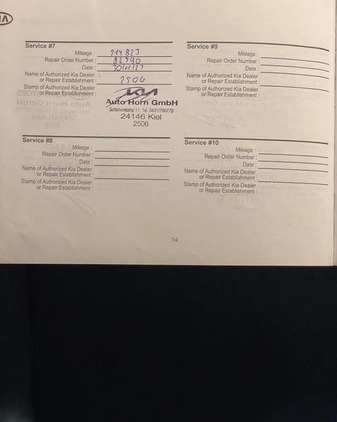 KIA
Service #7
Mileage :
Repair Order Number :
Date :
Name of Authorized Kia Dealer
or Repair Establishment : 2506
Stamp of Authorized Kia Dealer
or Repair Establishment :
KIA
Auto Horn GmbH
24146 Kiel
2506
Service #8
Mileage :
Repair Order Number :
Date :
Name of Authorized Kia Dealer
or Repair Establishment :
Stamp of Authorized Kia Dealer
or Repair Establishment :
Service #9
Mileage :
Repair Order Number :
Date :
Name of Authorized Kia Dealer
or Repair Establishment :
Stamp of Authorized Kia Dealer
or Repair Establishment :
Service #10
Mileage :
Repair Order Number :
Date :
Name of Authorized Kia Dealer
or Repair Establishment :
Stamp of Authorized Kia Dealer
or Repair Establishment :
14